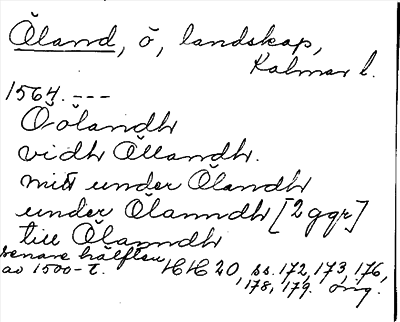 Öland, ö, landskap,
Kalmar l.
1564. ---
Ö ölandh
vidh Öllandh.
mitt under Ölandh
under Ölanndh [2 ggr]
till Ölanndh
senare hälften
av 1500-t. HH 20, ss. 172, 173, 176,
178, 179. orig.